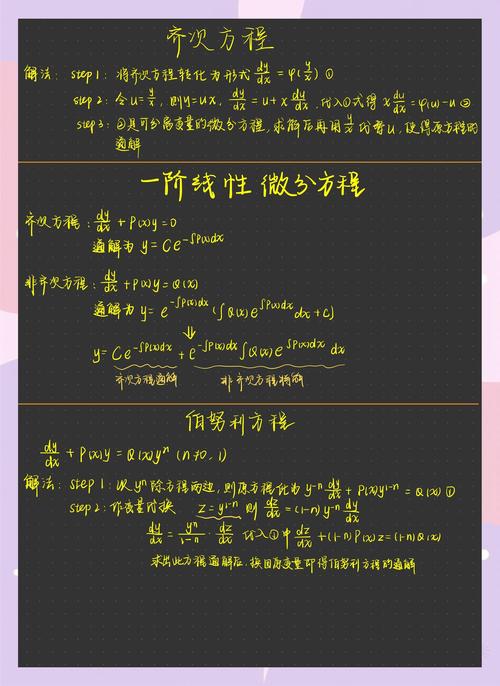 齐次方程
解法: step 1: 将齐次方程转化为形式 dy/dx = φ(y/x) ①
step 2: 令 u=y/x, 则 y=ux, dy/dx = u + x du/dx, 代入①式得 x du/dx = φ(u)-u ②
step 3: ②是可分离变量的微分方程, 求解后再用 y/x 代替 u, 便得原方程的
通解
一阶线性微分方程
齐次方程: dy/dx + P(x)y=0
通解为 y= Ce^{-∫P(x)dx}
非齐次方程: dy/dx + P(x)y = Q(x)
通解为 y= e^{-∫P(x)dx} (∫Q(x)e^{∫P(x)dx} dx + C)
⇓
y= Ce^{-∫P(x)dx} + e^{-∫P(x)dx} ∫Q(x)e^{∫P(x)dx} dx
齐次方程通解 非齐次方程特解
伯努利方程
dy/dx + P(x)y = Q(x)y^n (n≠0, 1)
解法: step 1: 以 y^n 除方程两边, 则原方程化为 y^{-n} dy/dx + P(x)y^{1-n} = Q(x) ①
step 2: 作变量代换 z = y^{1-n} 则 dz/dx = (1-n)y^{-n} dy/dx
dy/dx = y^n/1-n · dz/dx 代入①中 dz/dx + (1-n)P(x)z = (1-n)Q(x)
求出此方程通解后, 换回原变量即得伯努利方程的通解